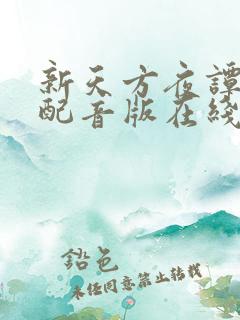 新天方夜譚
配音版在綫
鉛色
未經同意禁止轉載